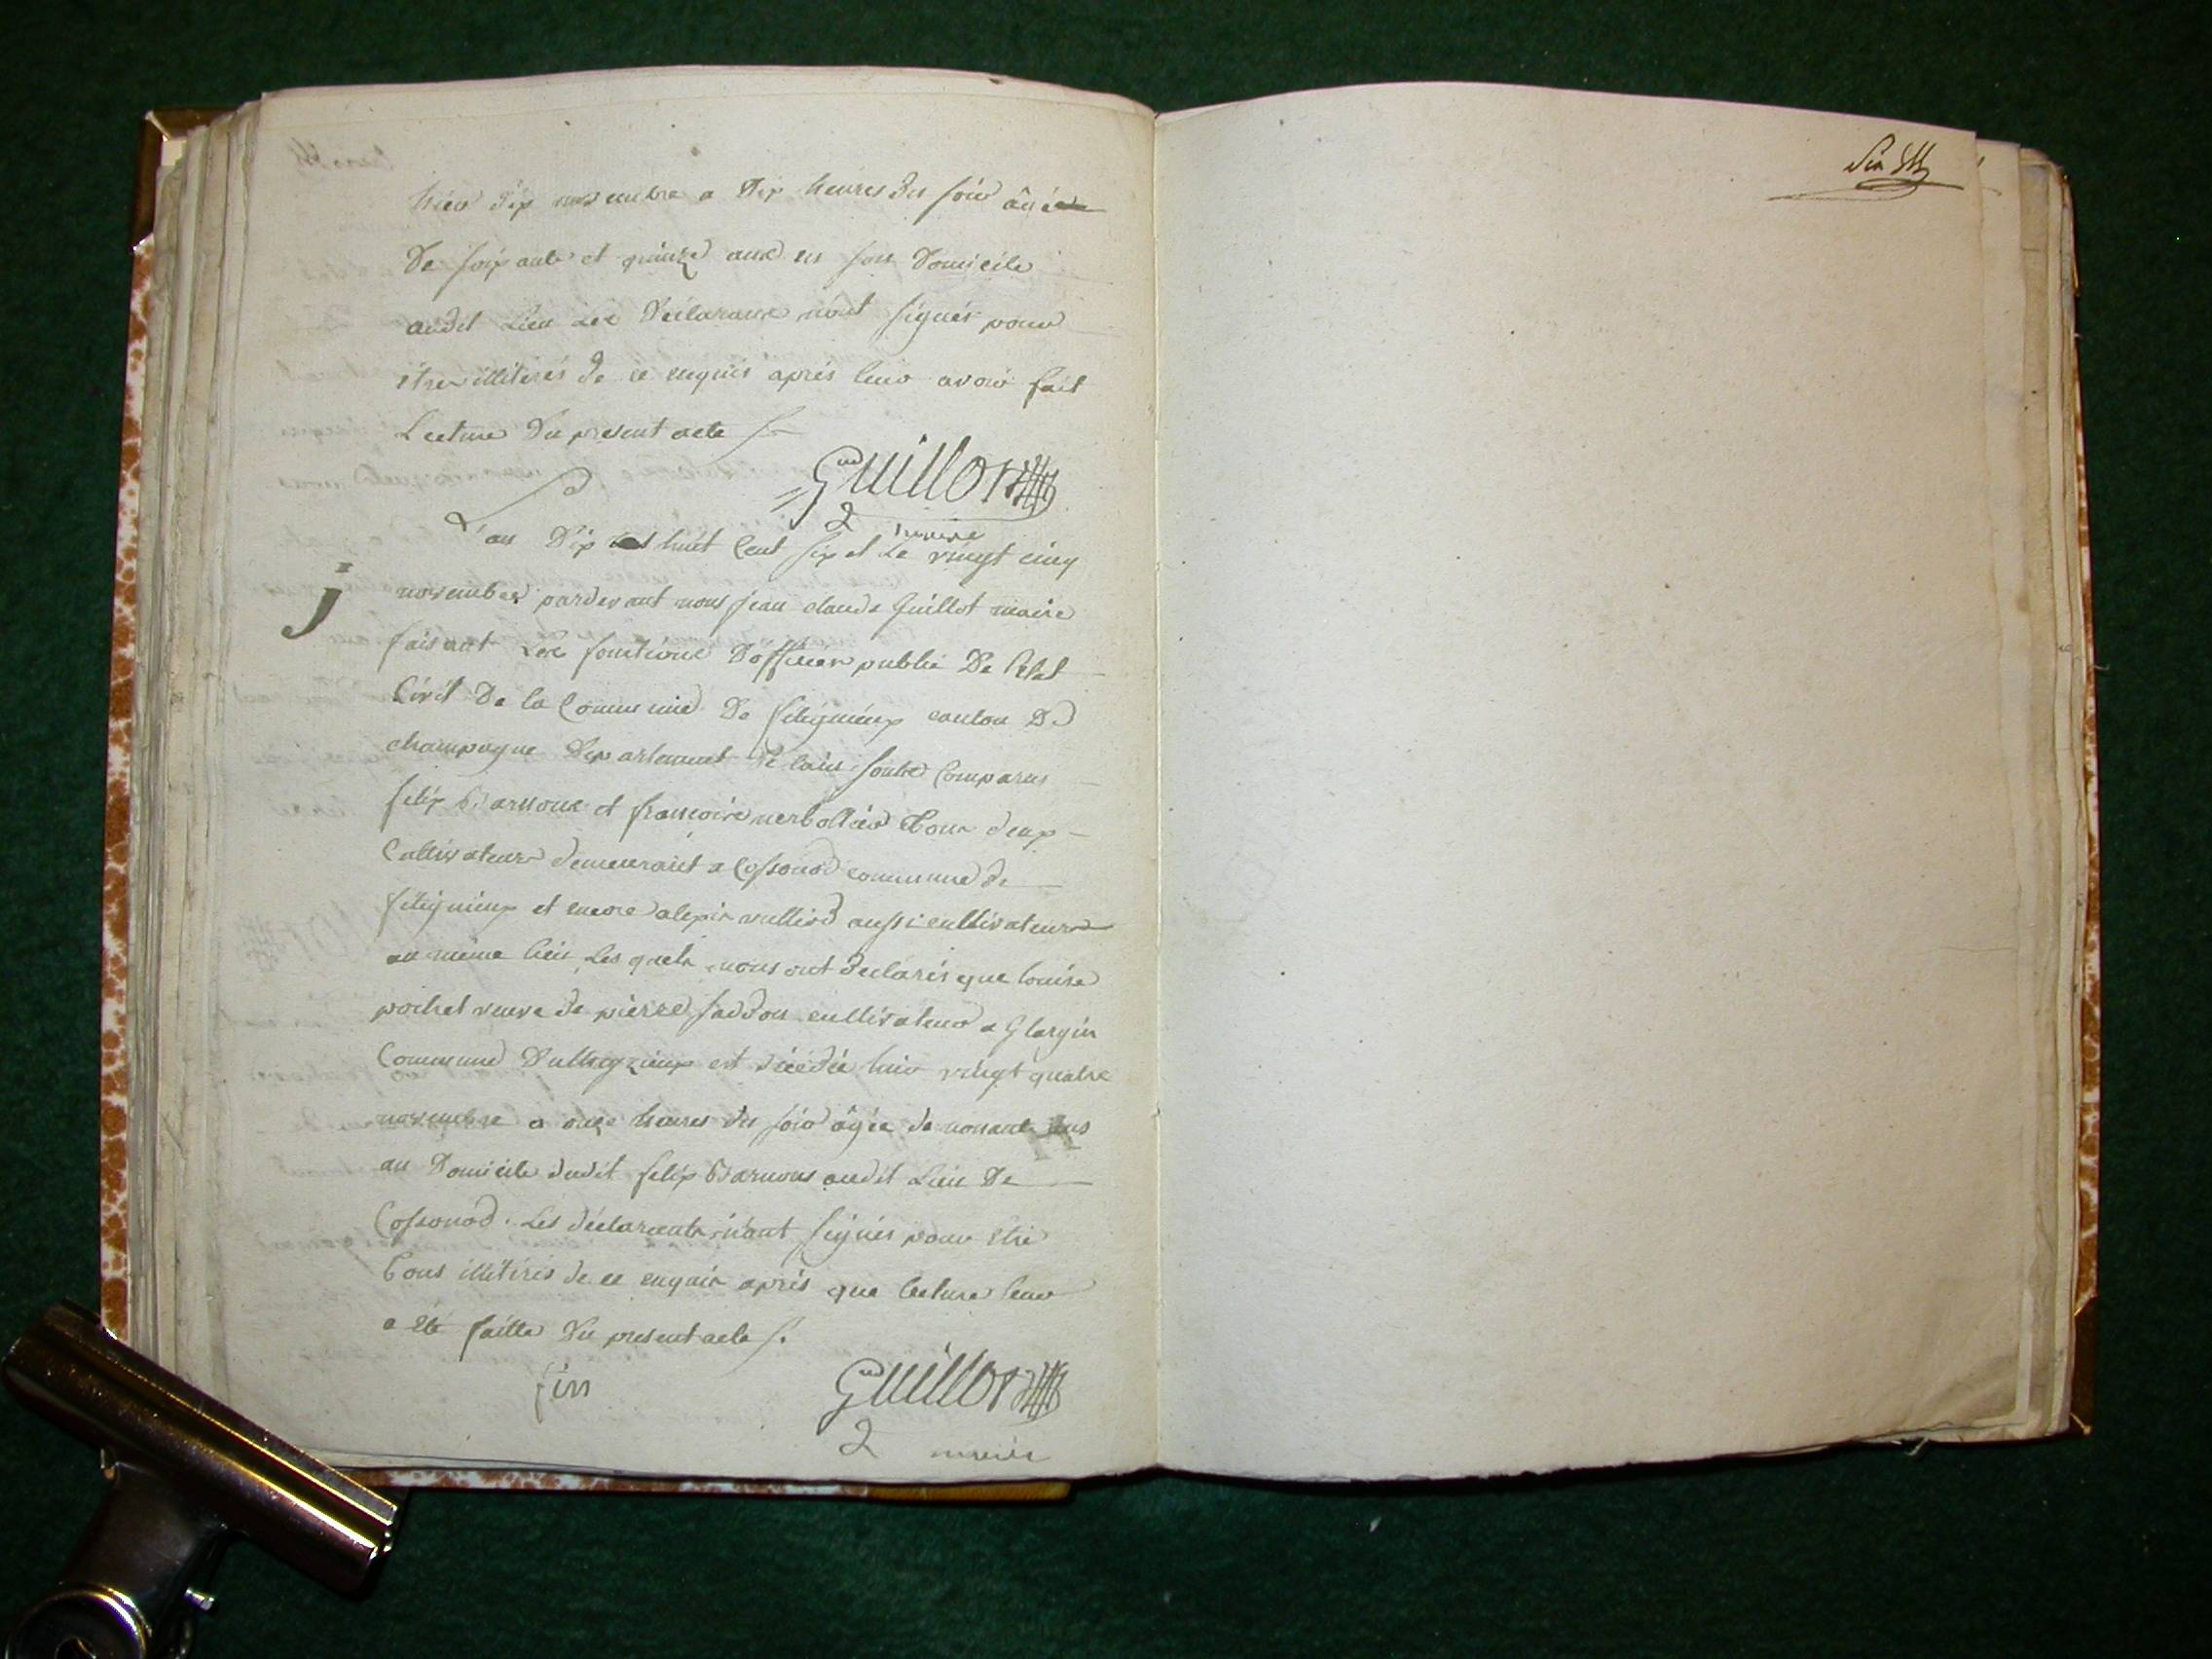 hier dix novembre a dix heures du soir âgée
De soixante et quinze ans en son Domicile
audit Lieu Les Déclarans n'ont signés pour
être illiterés de ce enquis après leur avoir fait
Lecture du present acte
Guillot
maire
L'an dix huit Cent six et le vingt cinq
j
novembre pardevant nous jean claude Guillot maire
faisant Les fonctions D'officier public De l'etat
Civil De la Commune De Songieu canton De
champagne Département De lain sont Comparus
felix Barnoux et francois Tous deux
Cultivateurs demeurant a Cossonod commune de
et encore alexis aussi cultivateur
au même lieu Lesquels nous ont declarés que louise
pochet veuve de pierre cultivateur a
Commune est décédée hier vingt quatre
novembre a onze heures du soir âgée de nonante ans
au Domicile dudit felix Barnoux audit Lieu De
Cossonod. Les déclarants n'ont signés pour être
Tous illitérés de ce enquis après que lecture leur
a été faitte Du present acte
fin
Guillot
maire